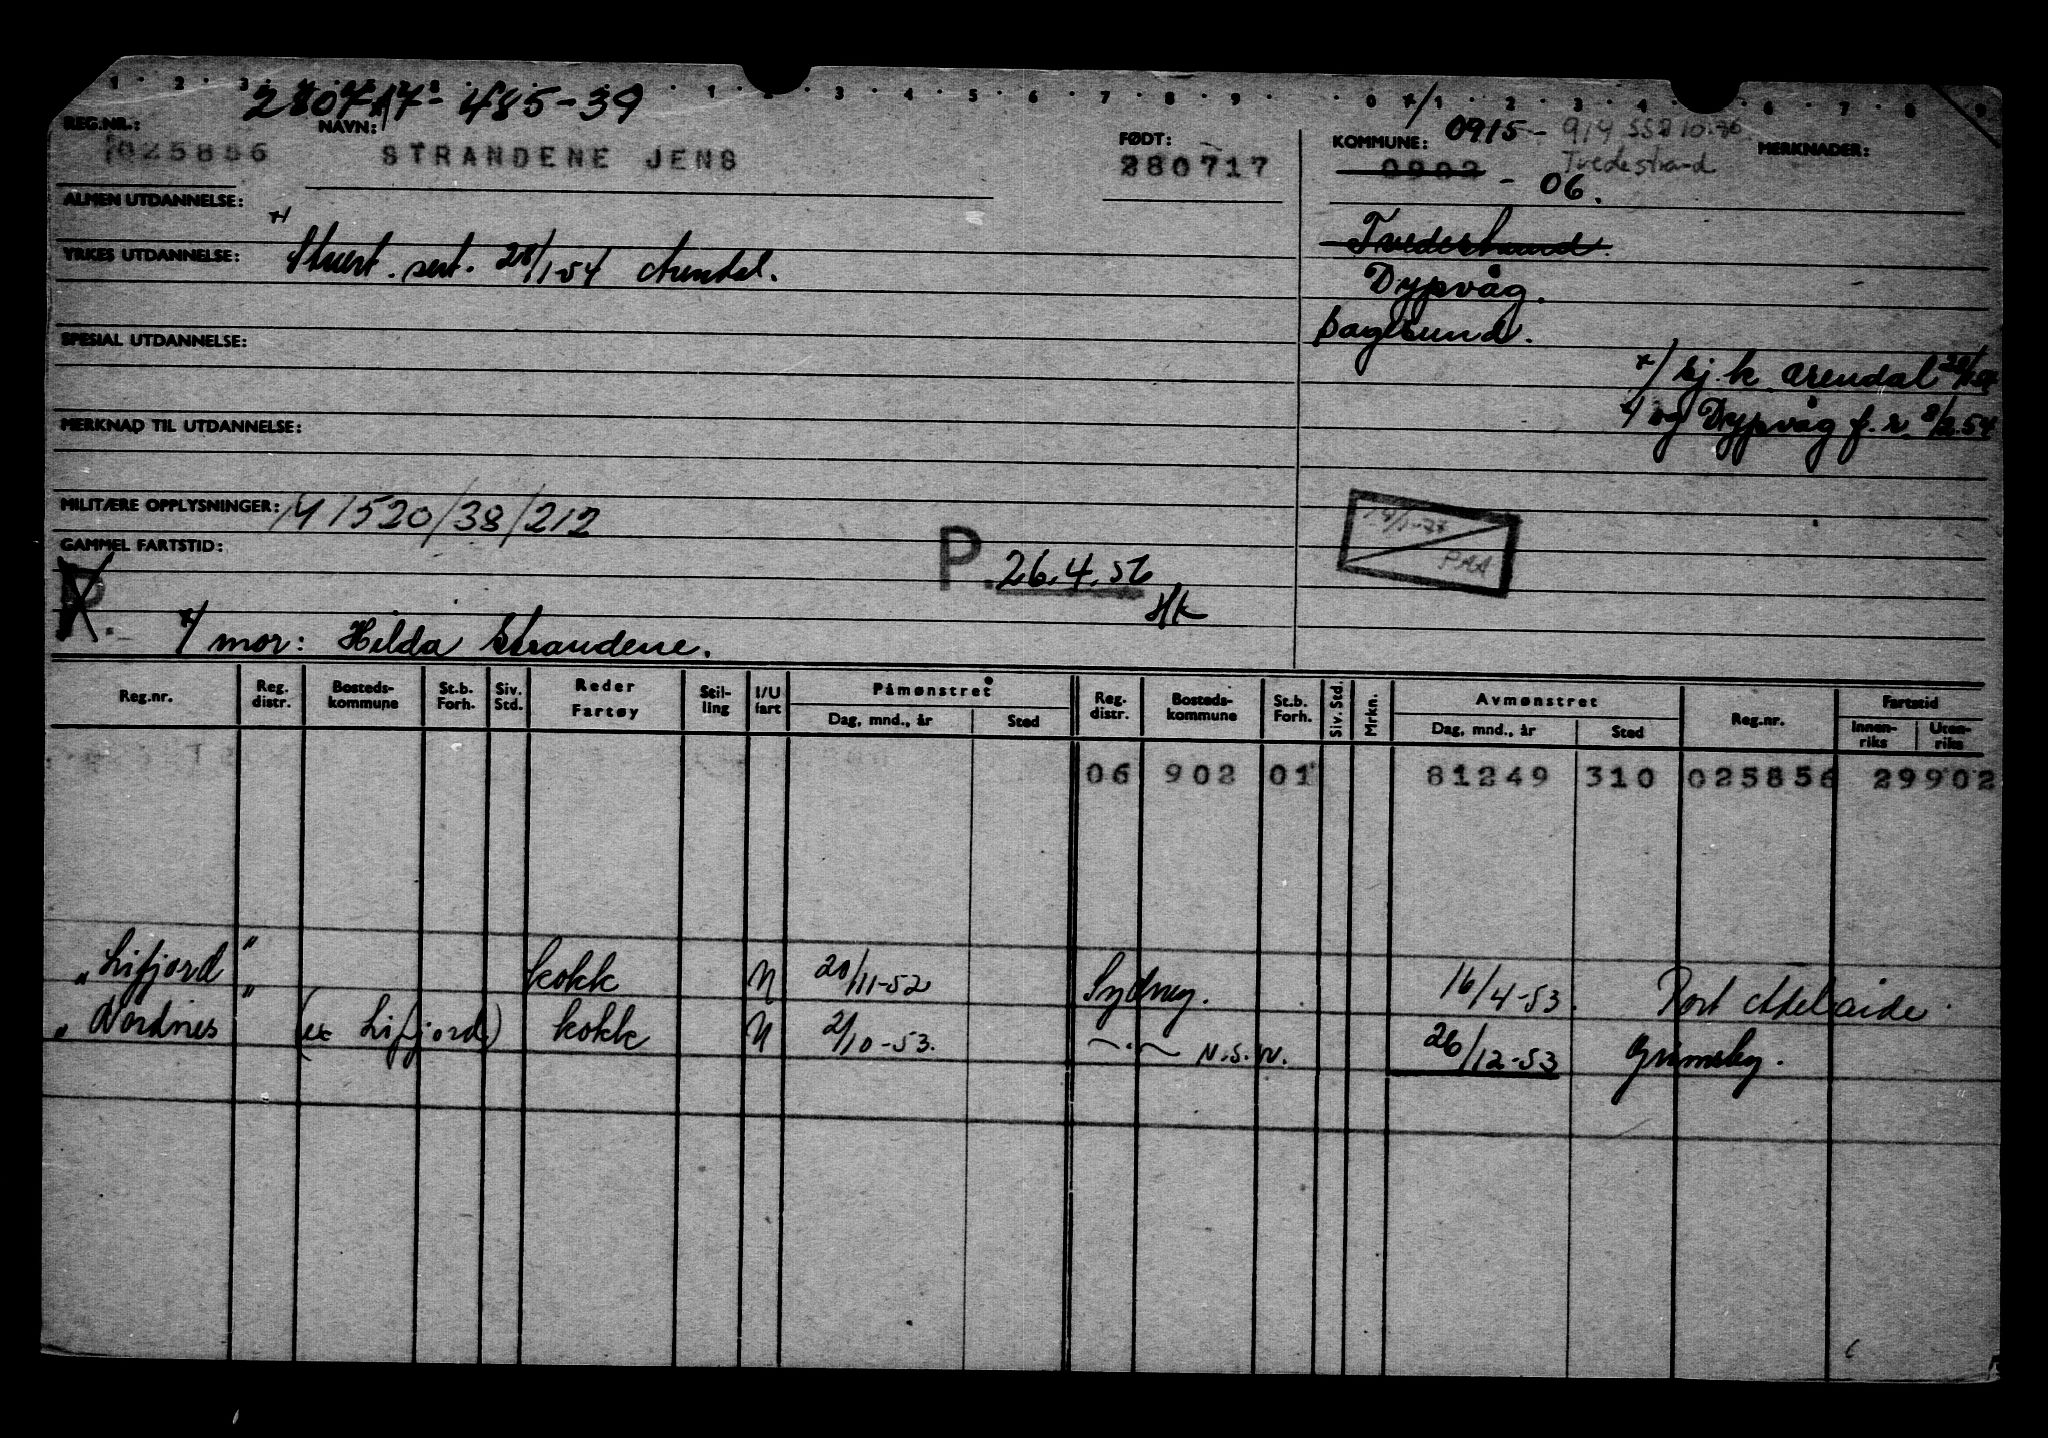 1 · 2 · 3 · 1 · 2 · 3 · 4 · 5 · 6 · 7 · 8 · 9 · 0 · 1 · 2 · 3 · 4 · 6 · 7 · 8 · 9
280717 - 485-39
REG.NR.: NAVN: FØDT: KOMMUNE: 0915 - 914 10.76 MERKNADER:
025856 STRANDENE JENS 280717 0902 - 06. Tvedestrand
ALMEN UTDANNELSE:
Tvedestrand.
YRKES UTDANNELSE: x/ Stuert. sert. 28/1-54 Arendal.
Dypvåg.
SPESIAL UTDANNELSE: Sagesund.
x/ sj. k. Arendal
MERKNAD TIL UTDANNELSE: x/ og Dypvåg f. r. 8/2.54
MILITÆRE OPPLYSNINGER: M 1520/38/212
GAMMEL FARTSTID:
P. 26.4.56
HK
PAA
P.
x/ mor: Hilda Strandene.
Reg.nr. Reg. distr. Bosteds-kommune St.b. Forh. Siv. Std. Reder Fartøy Stil-ling I/U fart Påmønstret Dag, mnd., år Sted Reg. distr. Bosteds-kommune St.b. Forh. Siv. Std. Mrkn. Avmønstret Dag, mnd., år Sted Reg.nr. Fartstid Innen-riks Uten-riks
06 902 01 81249 310 025856 29902
„Lifjord" kokk U 20/11-52 Sydney. 16/4-53. Port Adelaide.
„Nordnes" (ex Lifjord) kokk U 2/10-53. —〃— N.S.W. 26/12-53 Grimsby.